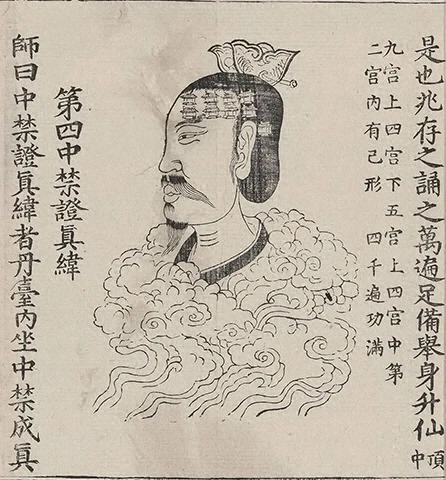 是也兆存之誦之萬遍足備舉身升仙頂中
九宫上四宫下五宫上四宫中第
二宫内有己形 四千遍功滿
第四中禁證眞緯
師曰中禁證眞緯者丹臺内坐中禁成眞